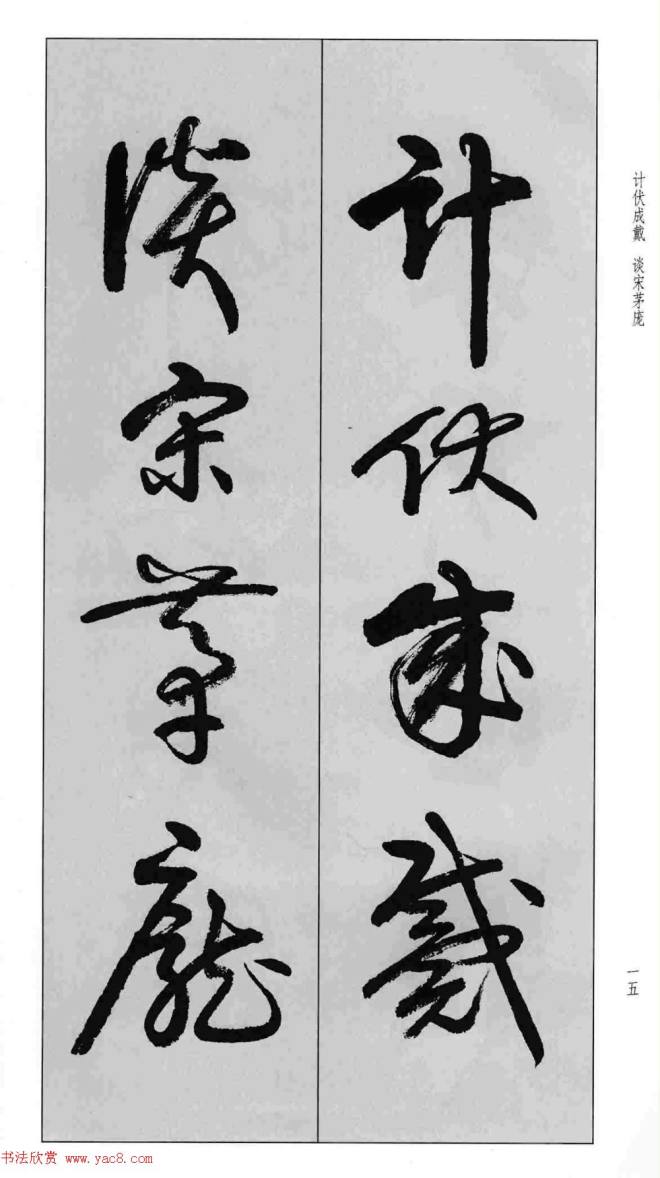 计伏成戴 谈宋茅庞
計伏成戴
談宋茅龐
一五
书法欣赏 www.yac8.com